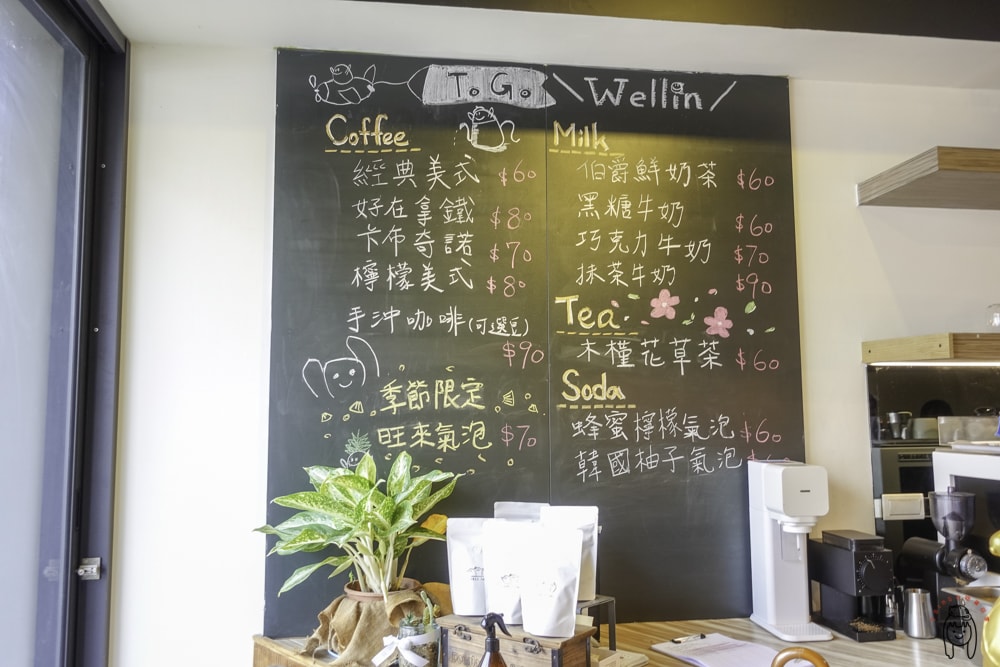 T.G. \Wellin/
Coffee
經典美式 $60
好在拿鐵 $80
卡布奇諾 $70
檸檬美式 $80
手沖咖啡(可選豆)
$90
季節限定
旺來氣泡 $70
Milk
伯爵鮮奶茶 $60
黑糖牛奶 $60
巧克力牛奶 $70
抹茶牛奶 $90
Tea
木槿花草茶 $60
Soda
蜂蜜檸檬氣泡 $60
韓國柚子氣泡